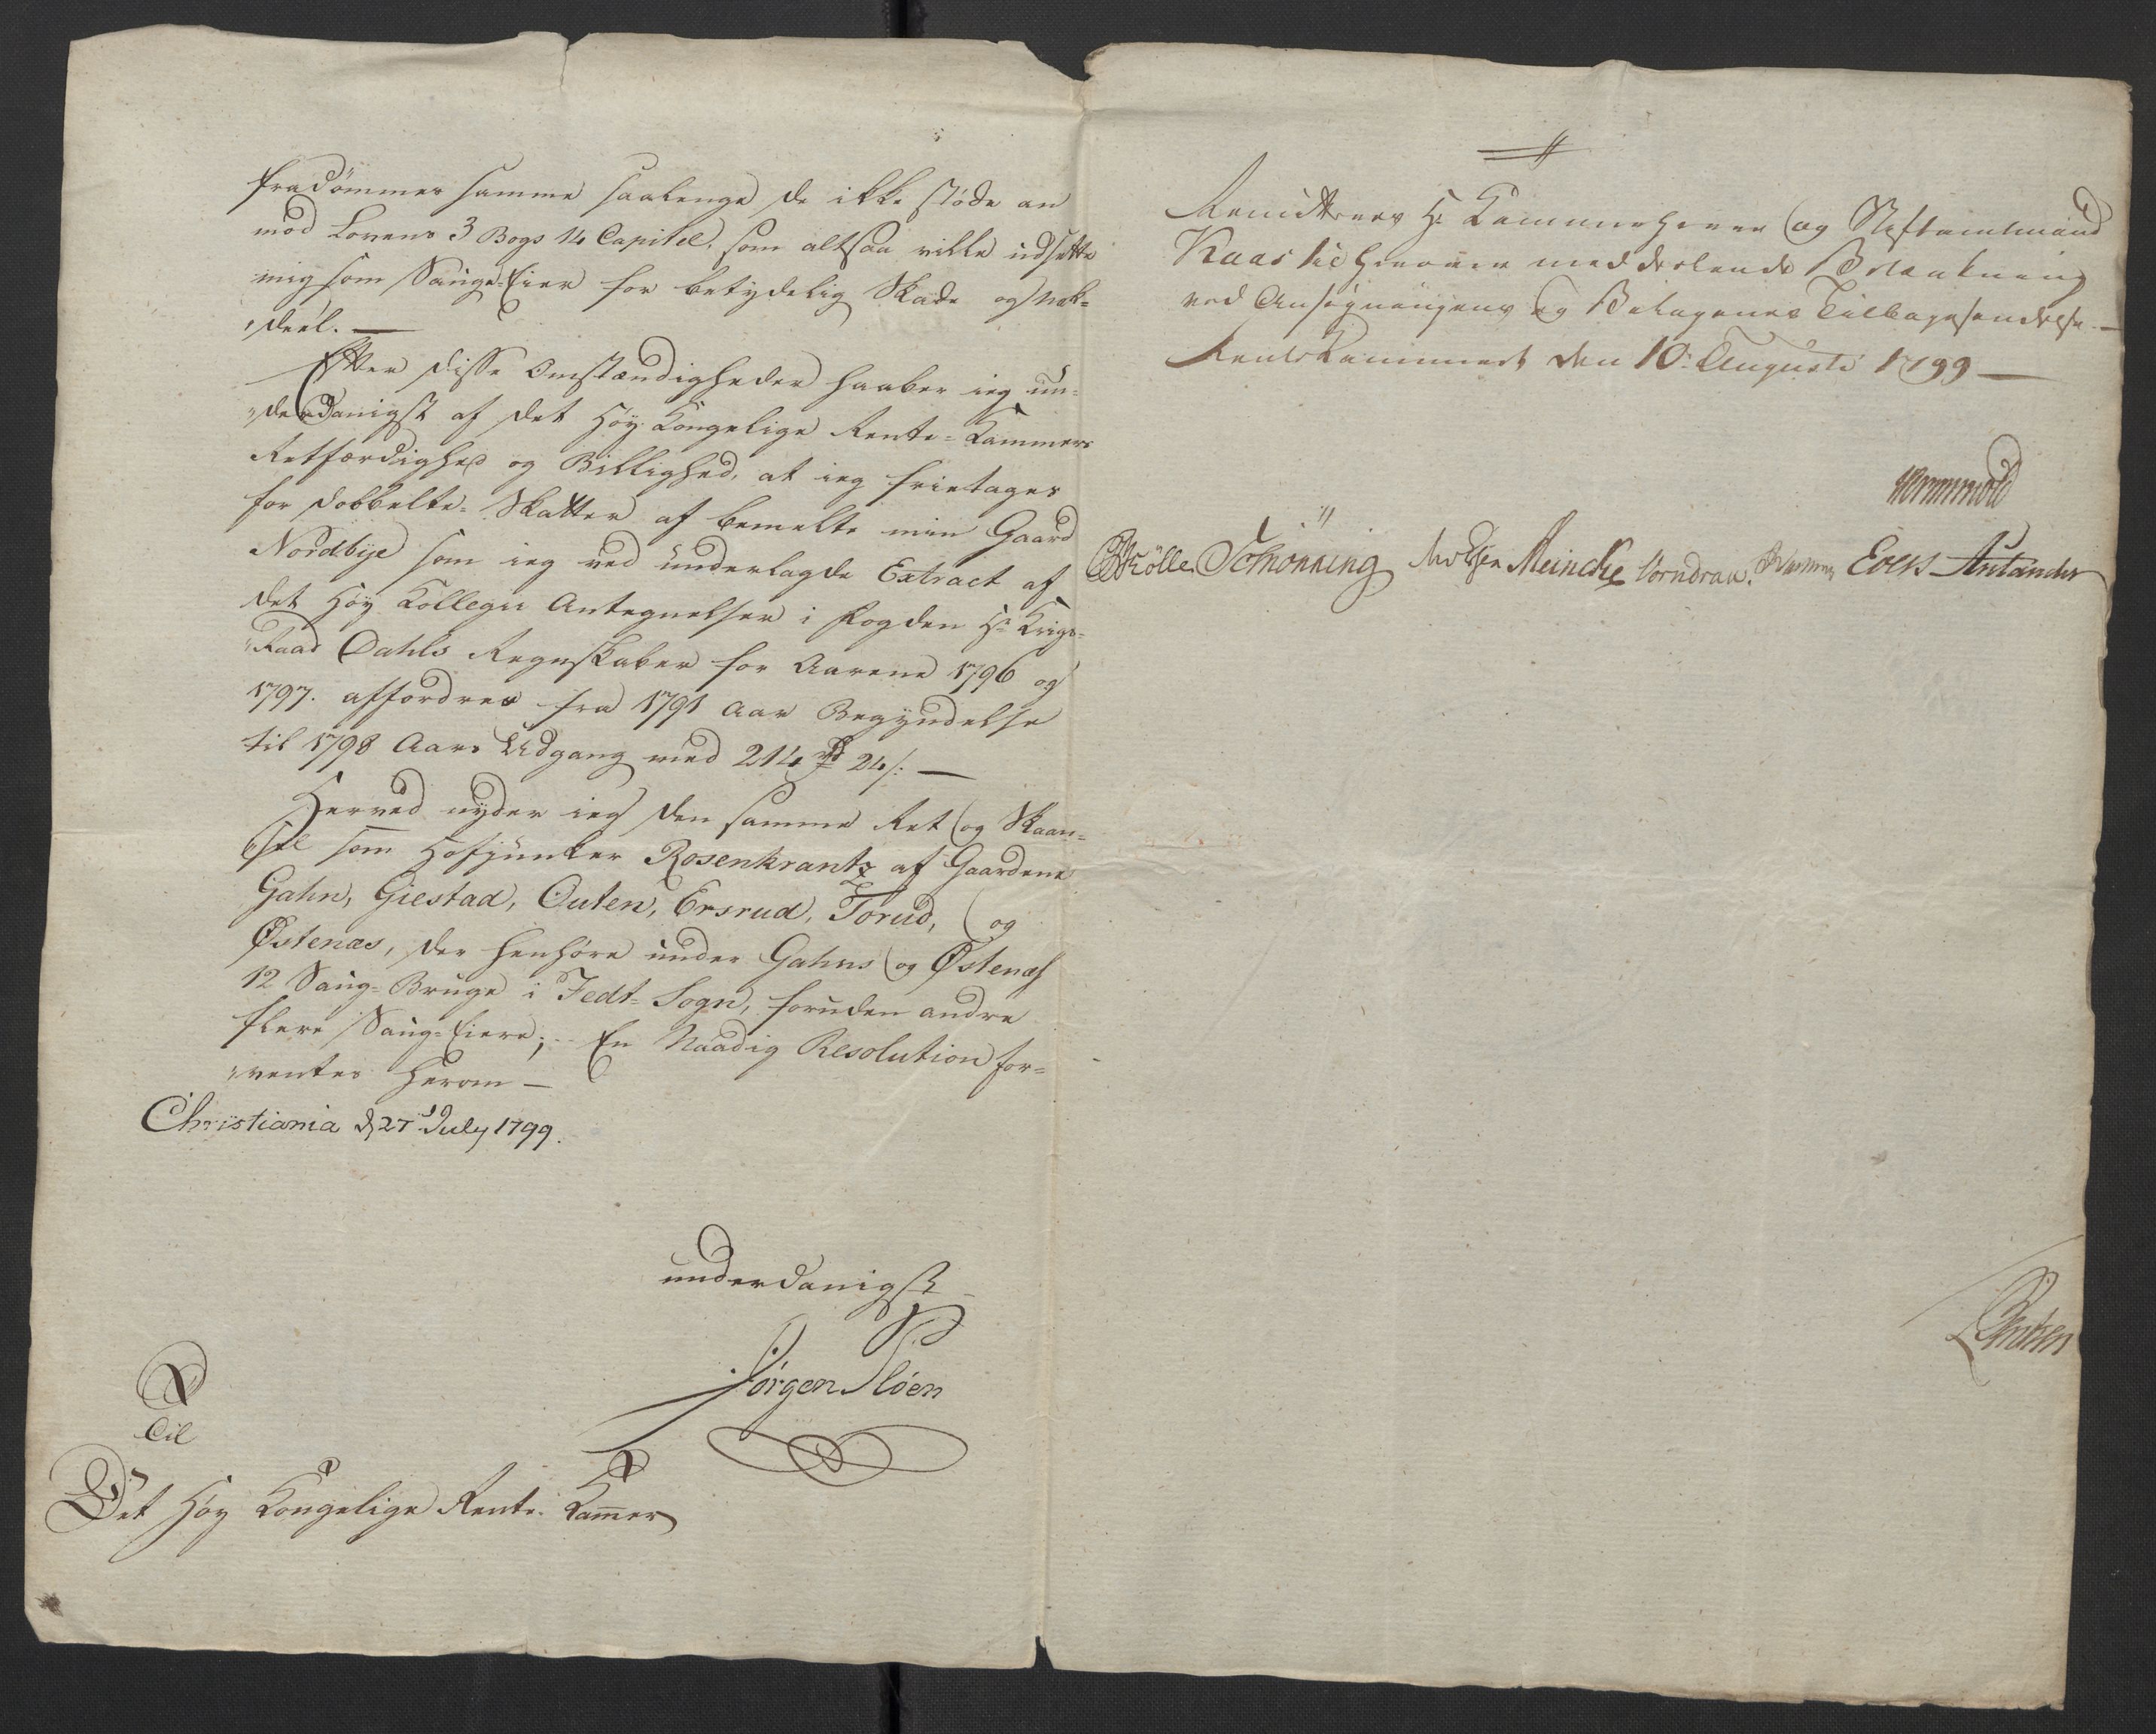 fradömmes samme saalenge de ikke støde an
mod Lovens 3 Bogs 14 Capitel, som altsaa ville udsætte
mig som Saugs-Eier for betydelig Skade og Nak-
„deel. —
Efter disse Omstændigheder haaber ieg un-
„derdanigst af det Høy Kongelige Rente-Kammers
Retfærdighed og Billighed, at ieg frietages
for dobbelte-Skatter af bemelte min Gaard
Nordbye som ieg ved underlagde Extract af
det Høy Collegii Antegnelser i Fogden Hr Krigs-
„Raad Dahls Regnskaber for Aarene 1796 og
1797. affordres fra 1791 Aars Begyndelse
til 1798 Aars Udgang med 214 rd 24 s: —
Herved nyder ieg den samme Ret og Skaan-
„sel som Hofjunker Rosenkrantz af Gaardene
Gahn, Giestad, Outen, Ersrud, Torud, og
Østenæs, der henhøre under Gahns og Østenæs
12 Saug-Bruge i Fedt-Sogn, foruden andre
flere Saug-Eiere; En Naadig Resolution for-
„ventes herom —
Christiania d. 27 July 1799.
underdanigst
Jörgen Plöen
Til
Det Høy Kongelige Rente-Kammer
Remitteres Hr Kammerherre og Stiftamtmand
Kaas til herover meddelende Betænkning
ved Ansøgningens og Bilagenes Tilbagesendelse. —
Rentekammeret den 10 Augusti 1799 —
Wormskiold
Schönning Meincke Vorndran.